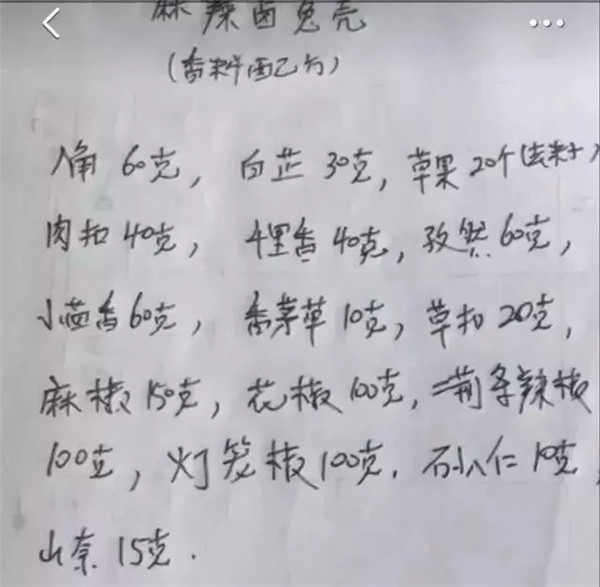 麻辣卤兔壳
(香料配方)
八角60克，白芷30克，草果20个(去籽)
肉扣40克，千里香40克，孜然60克，
小茴香60克，香茅草10克，草扣20克，
麻椒150克，花椒100克，二荆条辣椒
100克，灯笼椒100克．砂仁10克，
山奈15克．